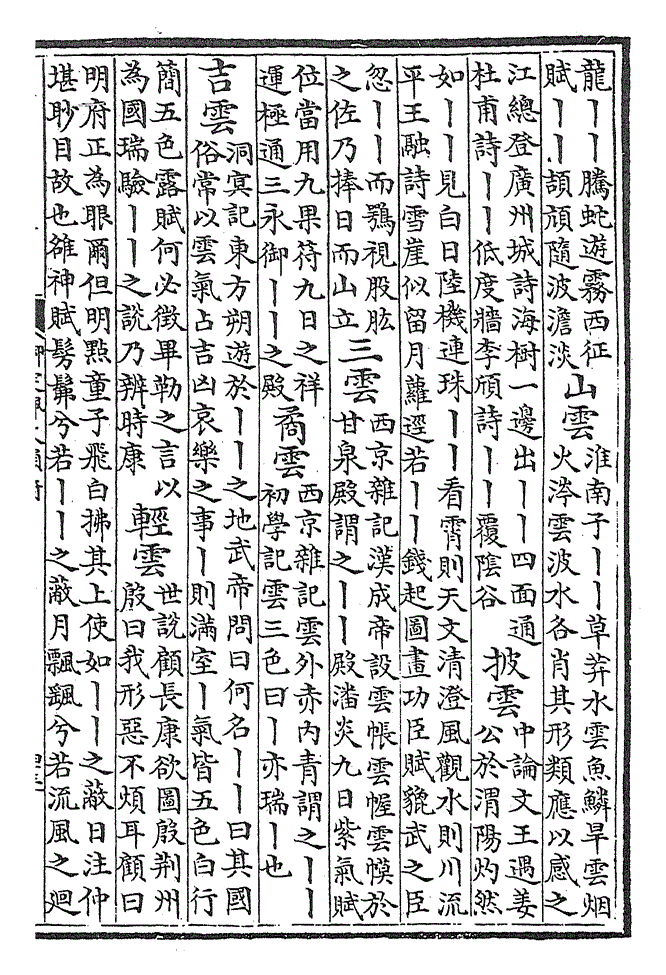 龍丨丨騰蛇遊霧西征
賦丨丨頡頏隨波澹淡
山雲
淮南子丨丨草莽水雲魚鱗旱雲烟
火涔雲波水各肖其形類應以感之
江總登廣州城詩海樹一邊出丨丨四面通
杜甫詩丨丨低度牆李頎詩丨丨覆陰谷
披雲
中論文王遇姜
公於渭陽灼然
如丨丨見白日陸機連珠丨丨看霄則天文清澄風觀水則川流
平王融詩雪崖似留月蘿逕若丨丨錢起圖畫功臣賦貔武之臣
忽丨丨而鶚視股肱
之佐乃捧日而山立
三雲
西京雜記漢成帝設雲帳雲幄雲幙於
甘泉殿謂之丨丨殿潘炎九日紫氣賦
位當用九果符九日之祥
運極通三永御丨丨之殿
矞雲
西京雜記雲外赤内青謂之丨丨
初學記雲三色曰丨亦瑞丨也
吉雲
洞冥記東方朔遊於丨丨之地武帝問曰何名丨丨曰其國
俗常以雲氣占吉凶哀樂之事丨則滿室丨氣皆五色白行
簡五色露賦何必徵畢勒之言以
為國瑞驗丨丨之說乃辨時康
輕雲
世說顧長康欲圖殷荊州
殷曰我形惡不煩耳顧曰
明府正為眼爾但明點童子飛白拂其上使如丨丨之蔽日注仲
堪眇目故也雒神賦髣髴兮若丨丨之蔽月飄颻兮若流風之迴